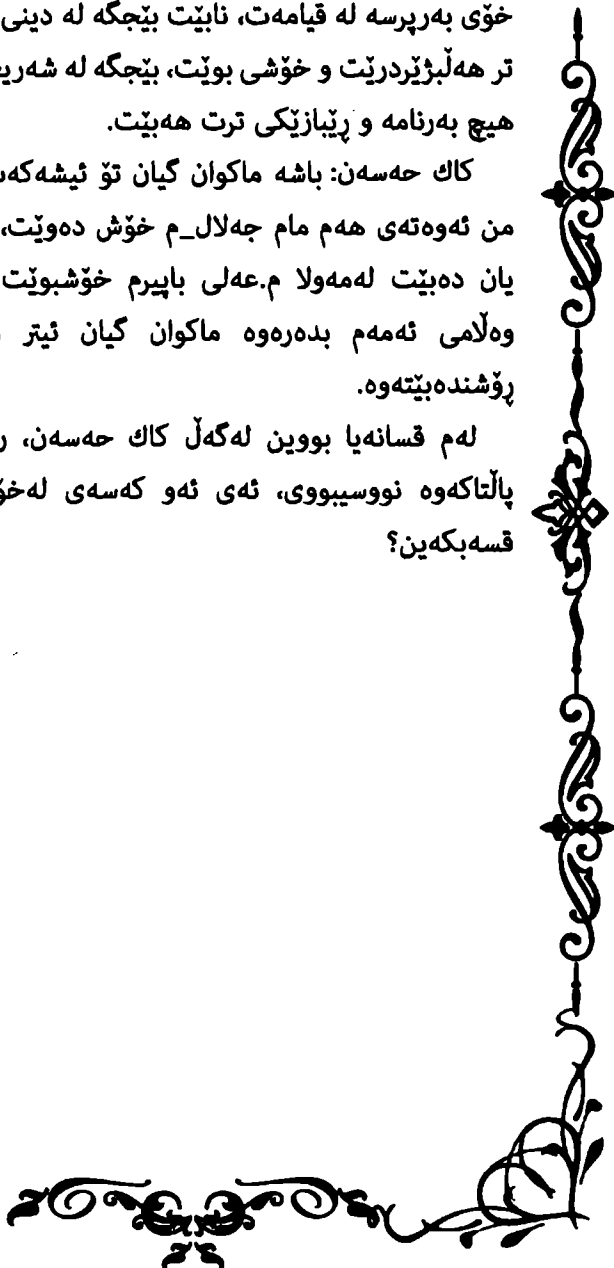 خۆی بەرپرسە لە قیامەت، نابێت بێجگە لە دینی
تر هەڵبژێردرێت و خۆشی بوێت، بێجگە لە
هیچ بەرنامە و ڕێبازێکی ترت هەبێت.
کاك حەسەن: باشە ماکوان گیان تۆ
من ئەوەتەی هەم مام جەلال_م خۆش دەوێت،
یان دەبێت لەمەولا م.عەلی باپیرم خۆشبوێت
وەڵامی ئەمەم بدەرەوە ماکوان گیان ئیتر
ڕۆشندەبێتەوە.
لەم قسانەیا بووین لەگەڵ کاك حەسەن،
پاڵتاکەوە نووسیبووی، ئەی ئەو کەسەی
قسەبکەین؟